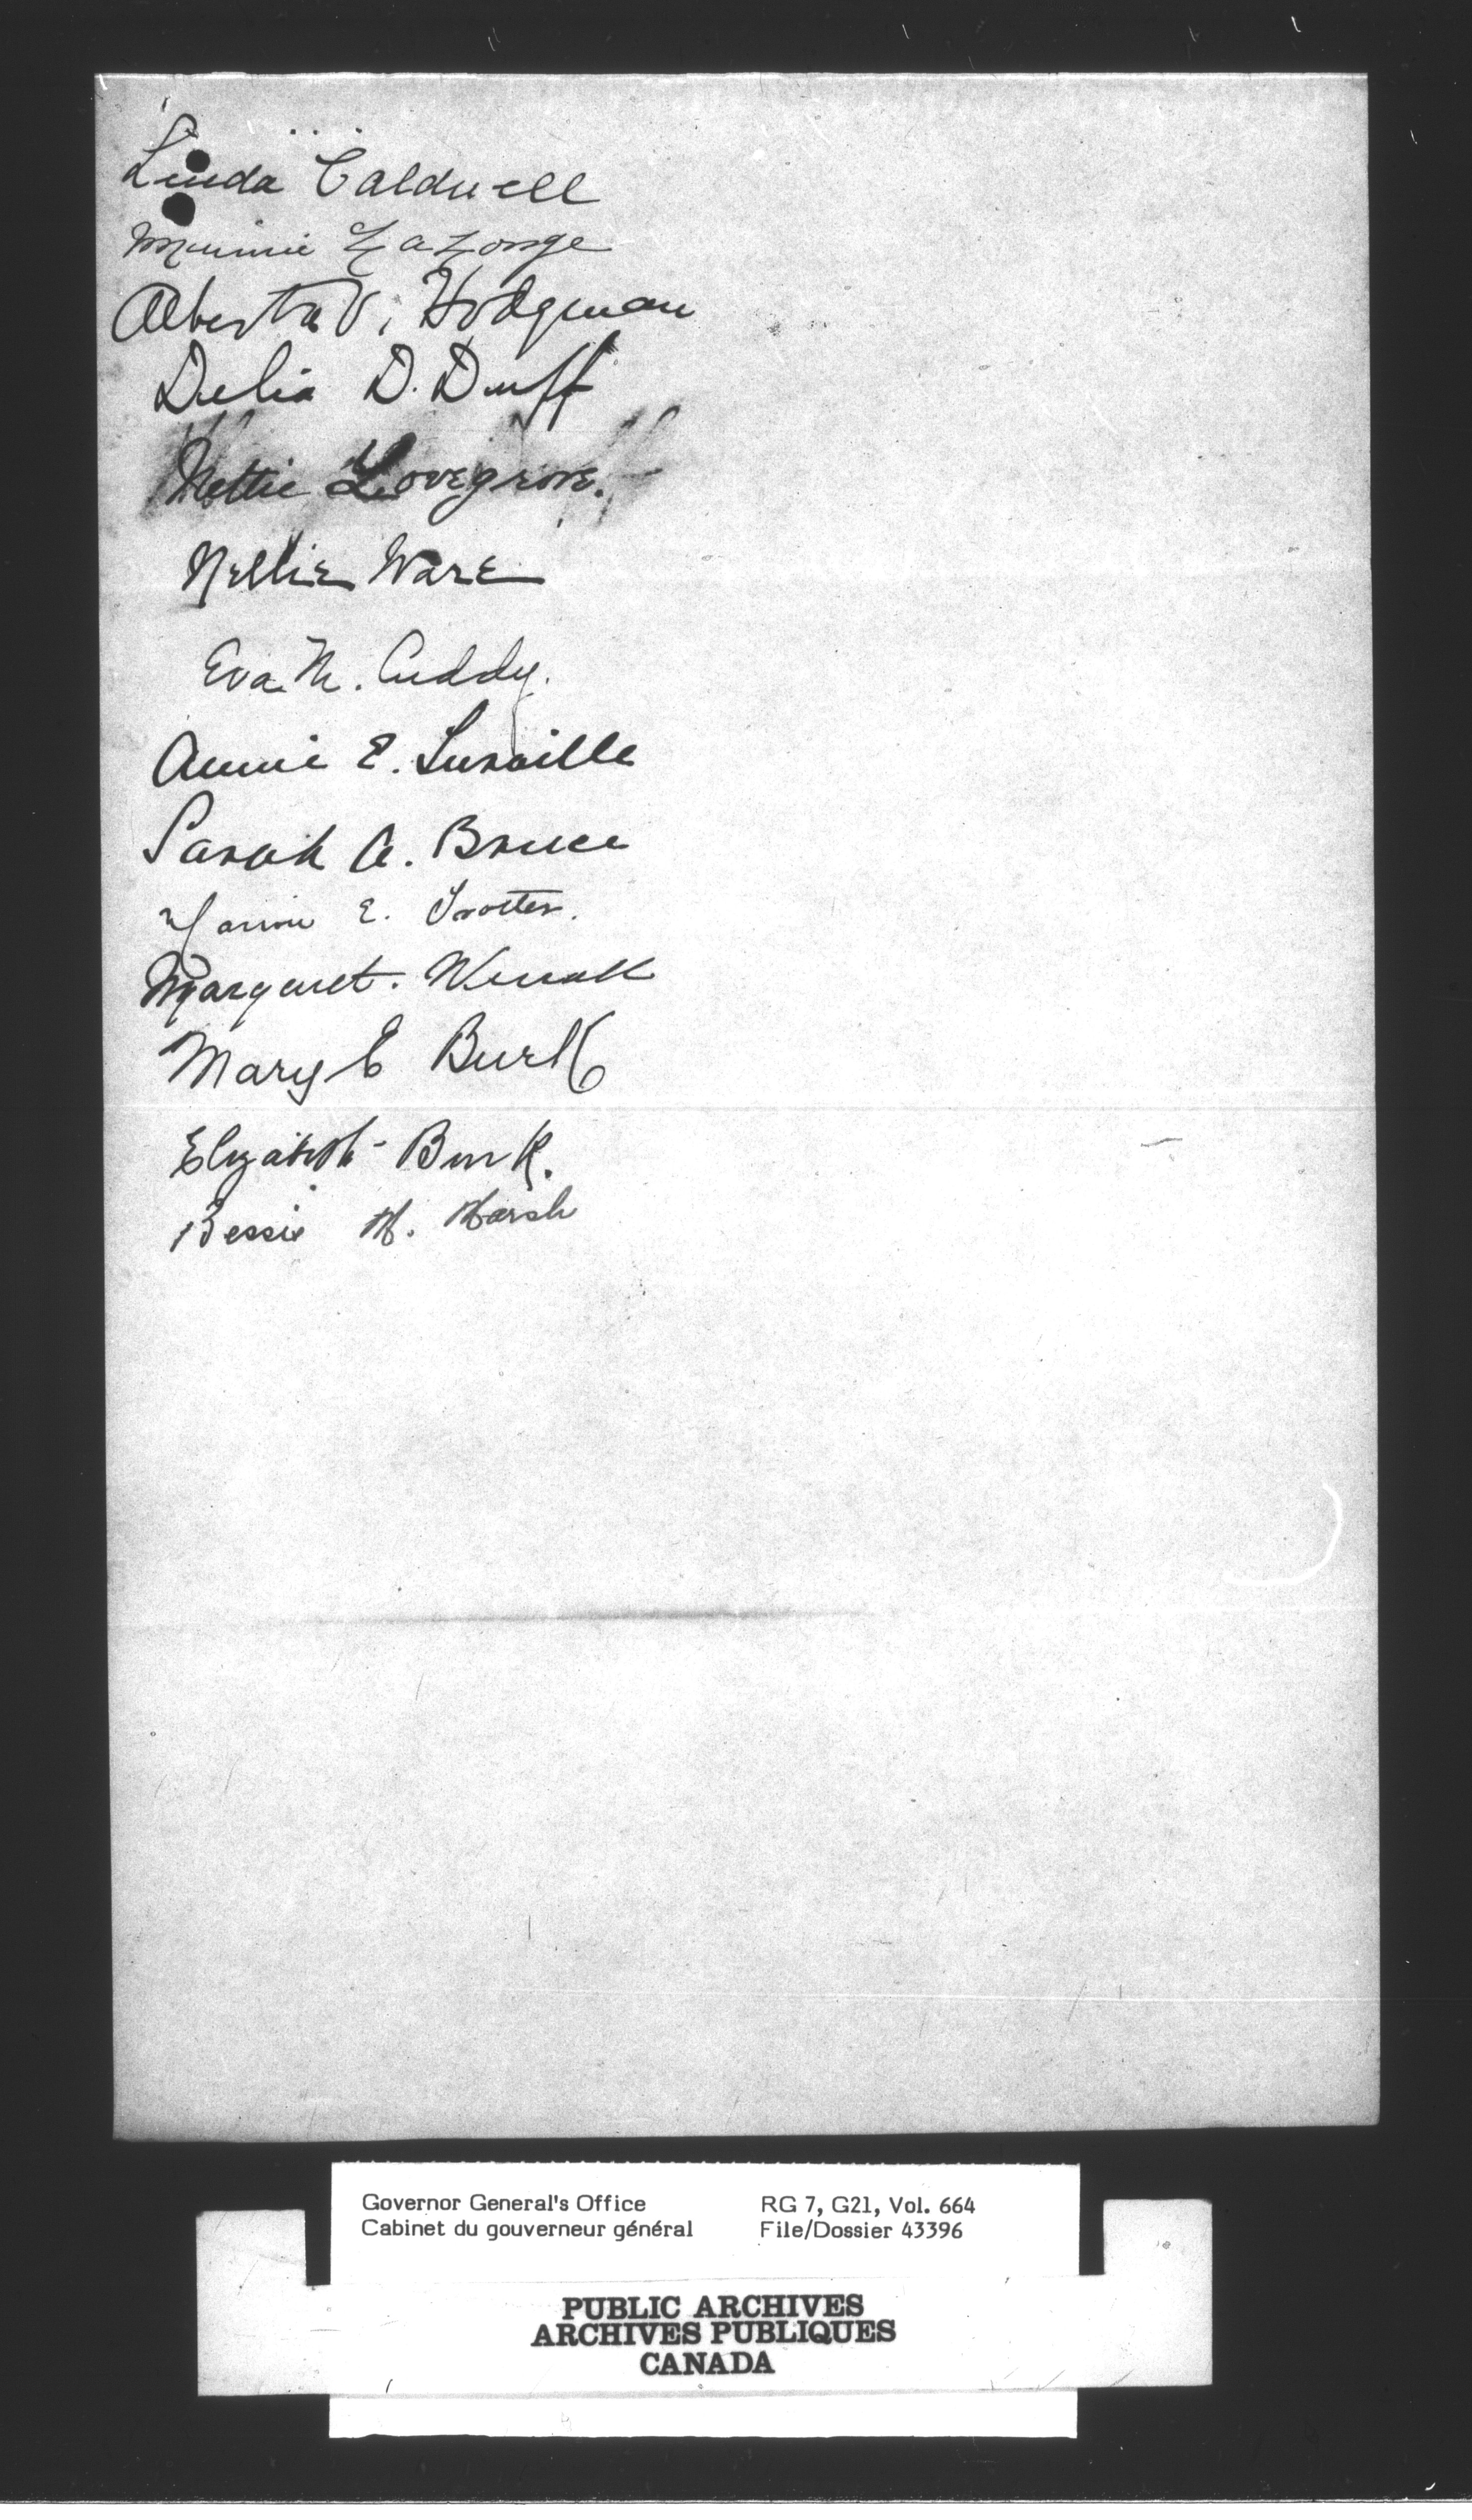 Linda Caldwell
Minnie LaLonge
Alberta V. Hodgman
Delia D. Duff
Nettie Lovegrove.
Nellie Ware
Eva M. Cuddy.
Annie E.
Sarah A. Bruce
E. Trotter.
Margaret.
Mary E Burk
Elizabeth Burk.
Bessie M. Marsh
Governor General's Office RG 7, G21, Vol. 664
Cabinet du gouverneur général File/Dossier 43396
PUBLIC ARCHIVES
ARCHIVES PUBLIQUES
CANADA